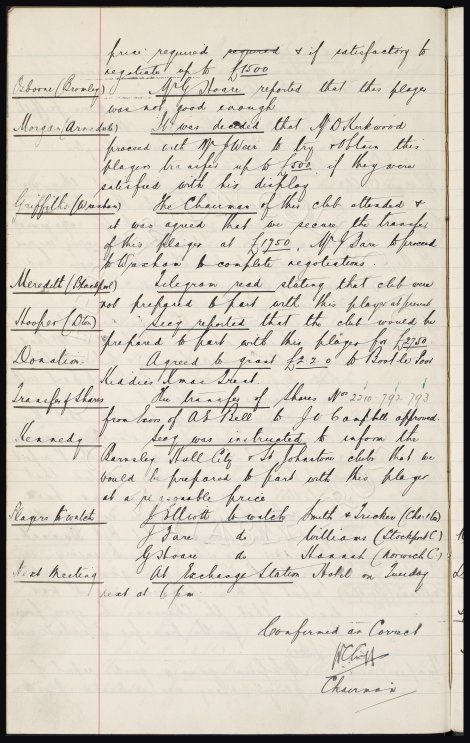 price required required & if satisfactory to
negotiate up to £1500
Osborne (Bromley) Mr G Hoare reported that this player
was not good enough
Morgan (Arundale) It was decided that Mr D Kirkwood
proceed with Mr J Weir to try & obtain this
players transfer up to £500 if they were
satisfied with his display
Griffiths (Wrexham) The Chairman of this club attended &
it was agreed that we secure the transfer
of this player at £1750. Mr J Fare to proceed
to Wrexham to complete negotiations.
Meredith (Blackpool) Telegram read stating that club were
not prepared to part with this player at present
Hooper (Do) Secy reported that the club would be
prepared to part with this player for £2750
Donation. Agreed to grant £2 2 0 to Bootle Poor
Kiddies Xmas Treat.
Transfer of Shares The transfer of Shares Nos 2210 792 793
from Exors of A E Bell to J C Campbell approved.
Kennedy Secy was instructed to inform the
Barnsley Hull City & St Johnstone clubs that we
would be prepared to part with this player
at a reasonable price
Players to watch J Elliott to watch Smith & Trickey (Chester)
J Fare do Williams (Stockport C)
G Hoare do Hannah (Norwich C)
Next Meeting At Exchange Station Hotel on Tuesday
next at 6 pm
Confirmed as Correct
Chairman